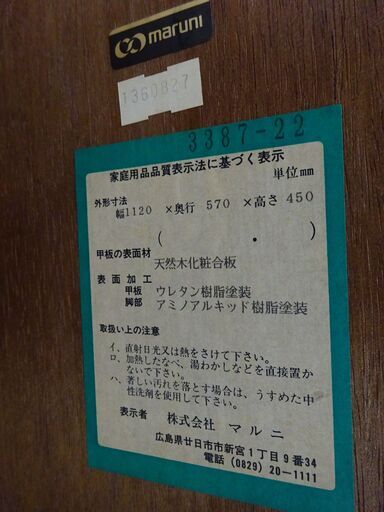 maruni
1360827
3387-22
家庭用品品質表示法に基づく表示
単位mm
外形寸法
幅1120 ×奥行 570 ×高さ 450
( ・ )
甲板の表面材
天然木化粧合板
表面加工
甲板 ウレタン樹脂塗装
脚部 アミノアルキッド樹脂塗装
取扱い上の注意
イ、直射日光又は熱をさけて下さい。
ロ、加熱したなべ、湯わかしなどを直接置か
ないで下さい。
ハ、著しい汚れを落とす場合は、うすめた中
性洗剤を使用して下さい。
表示者 株式会社 マルニ
広島県廿日市市新宮1丁目9番34
電話 (0829) 20-1111